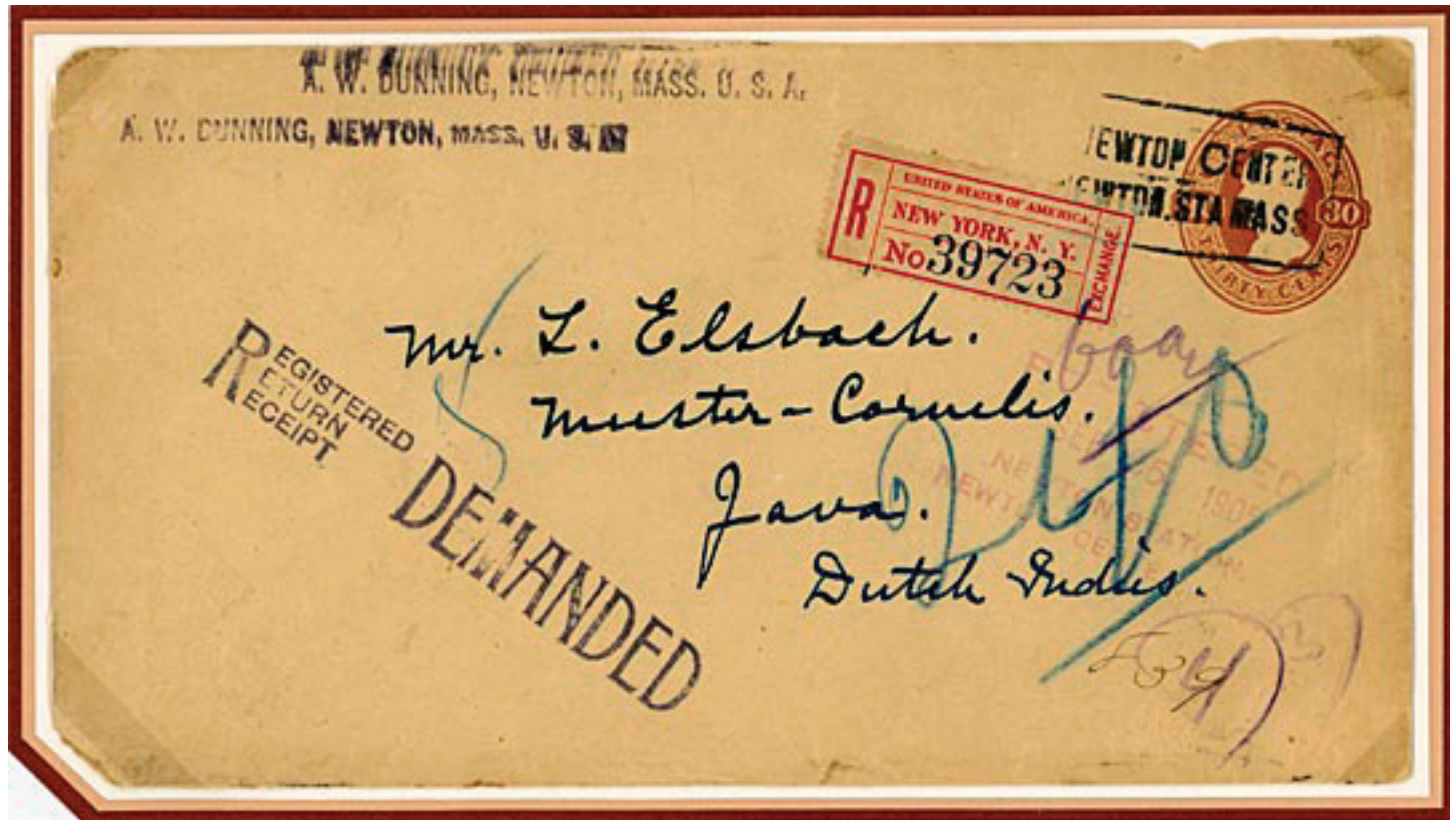 A. W. DUNNING, NEWTON, MASS. U. S. A.
A. W. DUNNING, NEWTON, MASS. U. S. A.
NEWTON CENTER
NEWTON.STA MASS
30
THIRTY CENTS
R
UNITED STATES OF AMERICA.
NEW YORK, N. Y.
No 39723
EXCHANGE.
Mr. L. Elsbach.
Meester-Cornelis.
Java.
Dutch Indies.
REGISTERED
RETURN
RECEIPT
DEMANDED
NEWTON STATION.